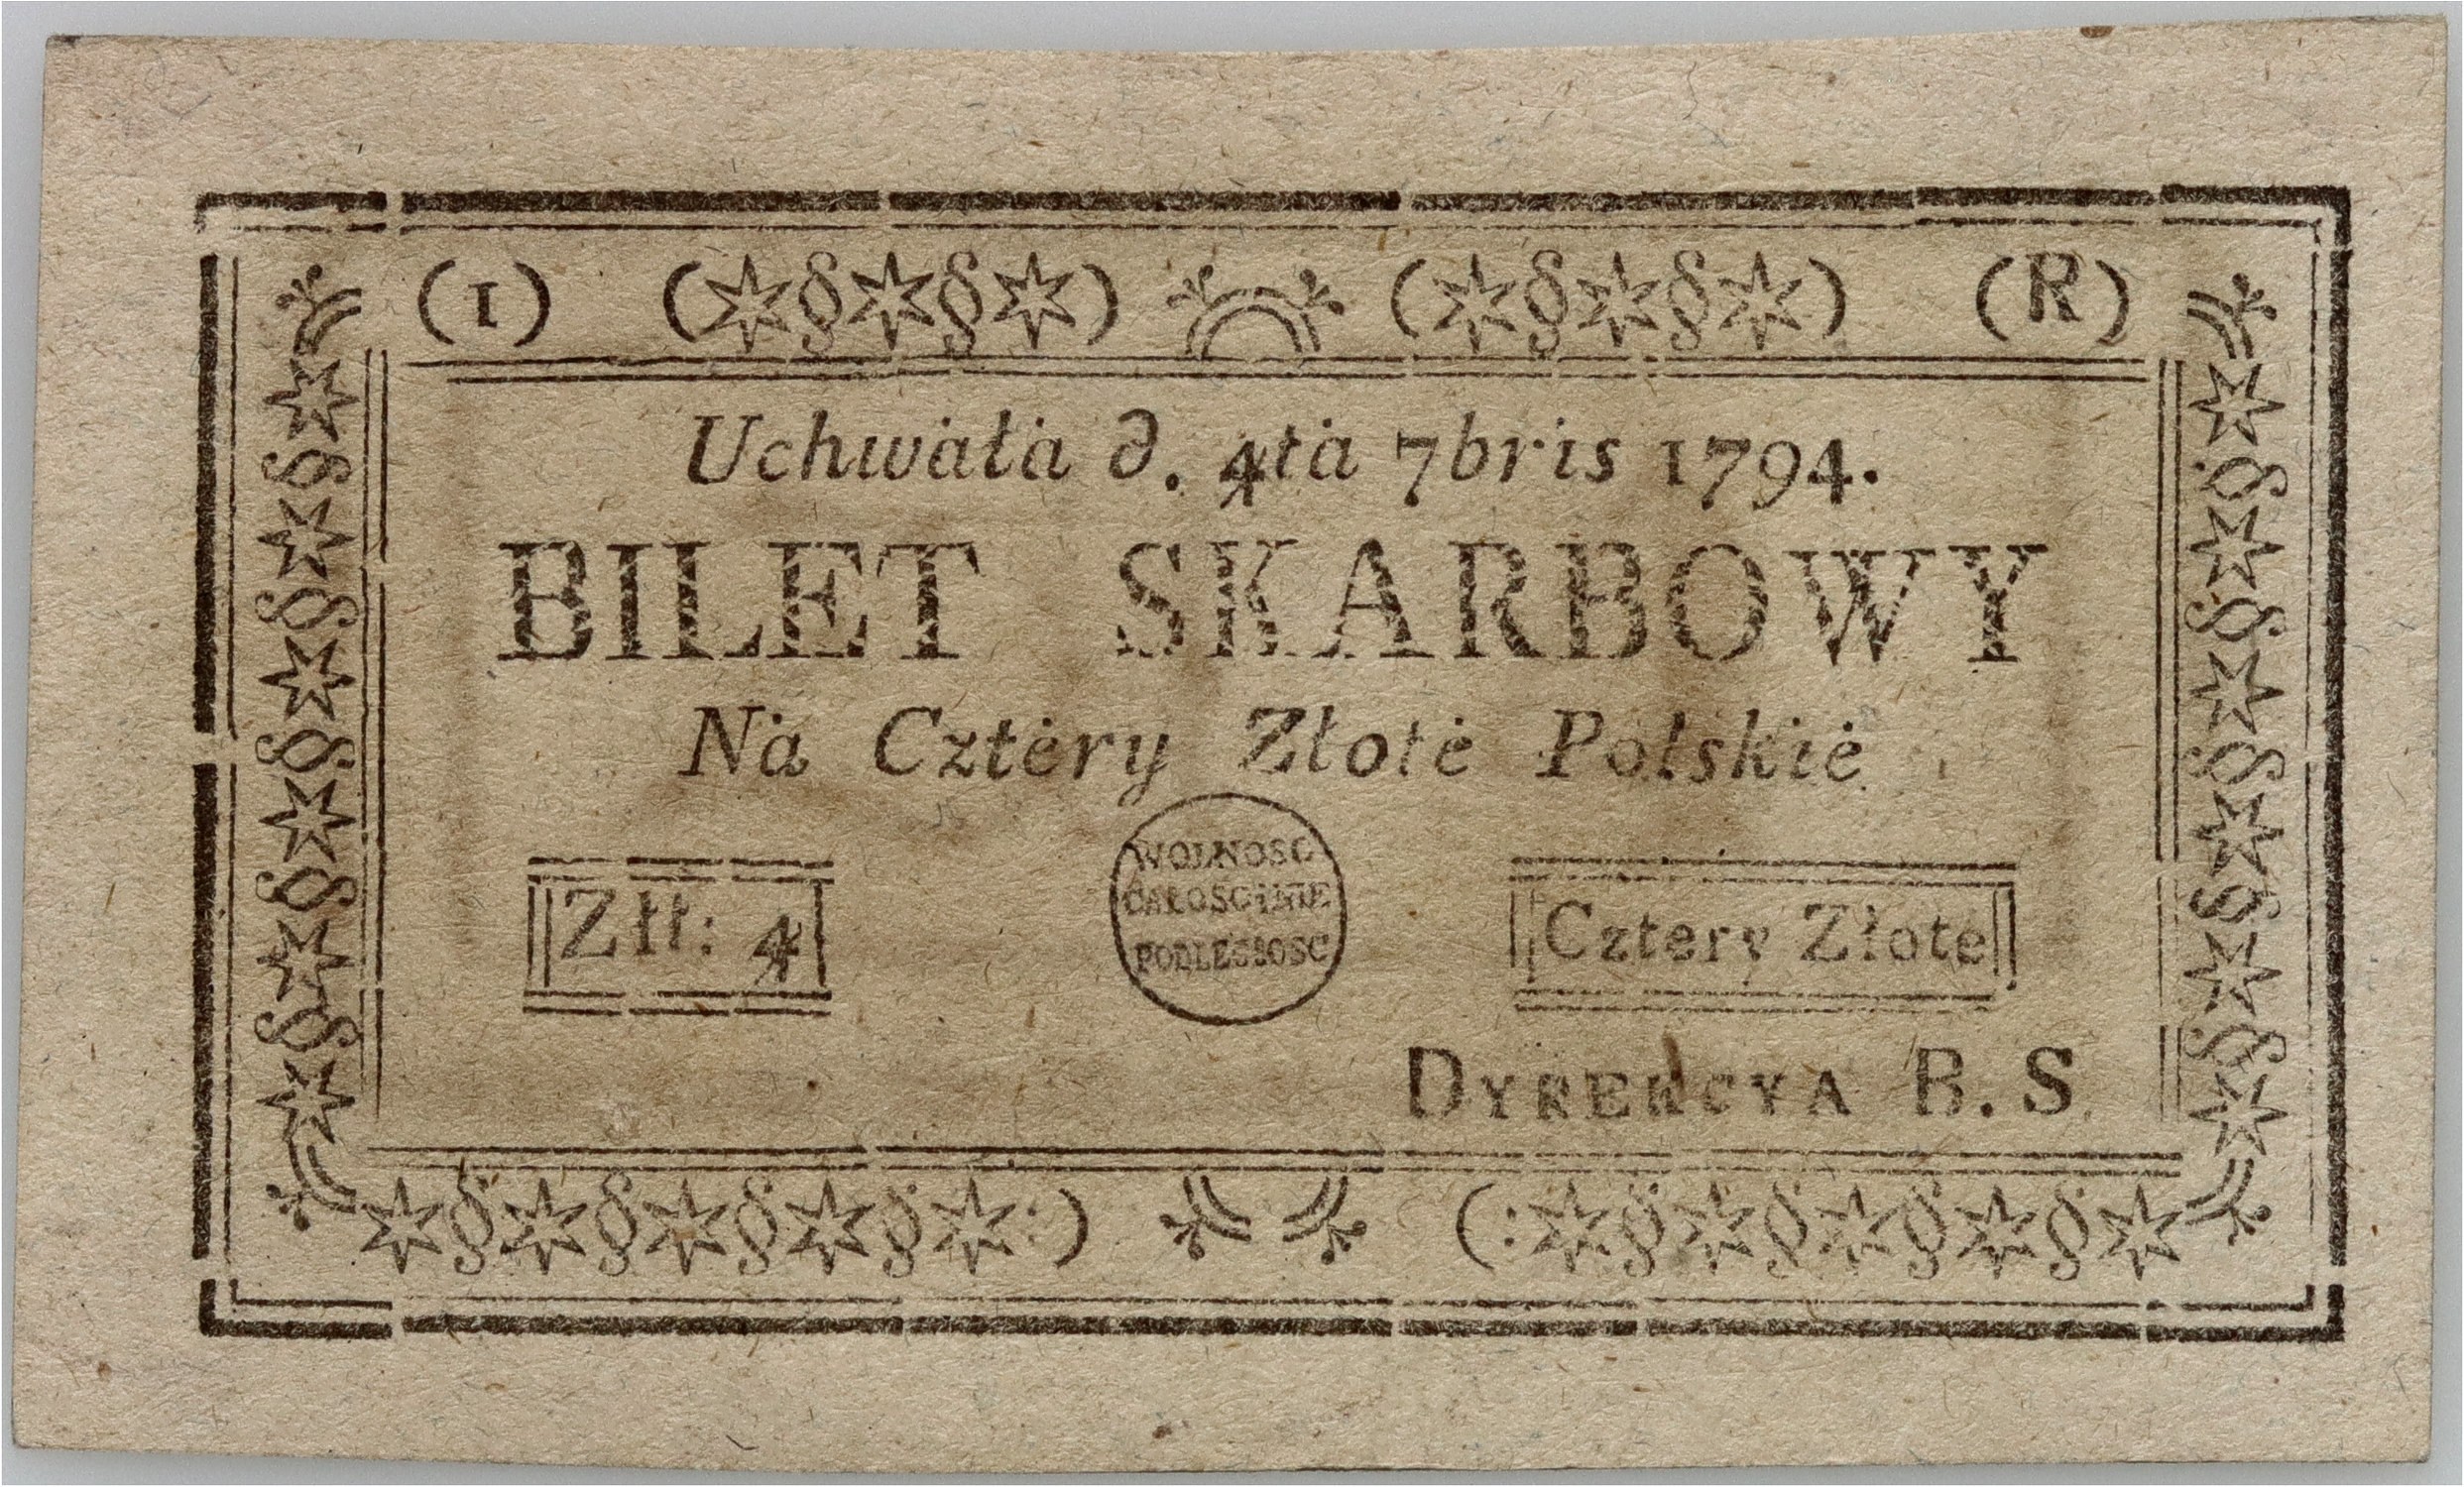 (I) (R)
Uchwàłà d. 4tà 7bris 1794.
BILET SKARBOWY
Nà Cztėry Złotė Polskiė
WOLNOSC
CAŁOSC i NIE
PODLEGŁOSC
Złł: 4
Cztery Złote
DYREKCYA B. S